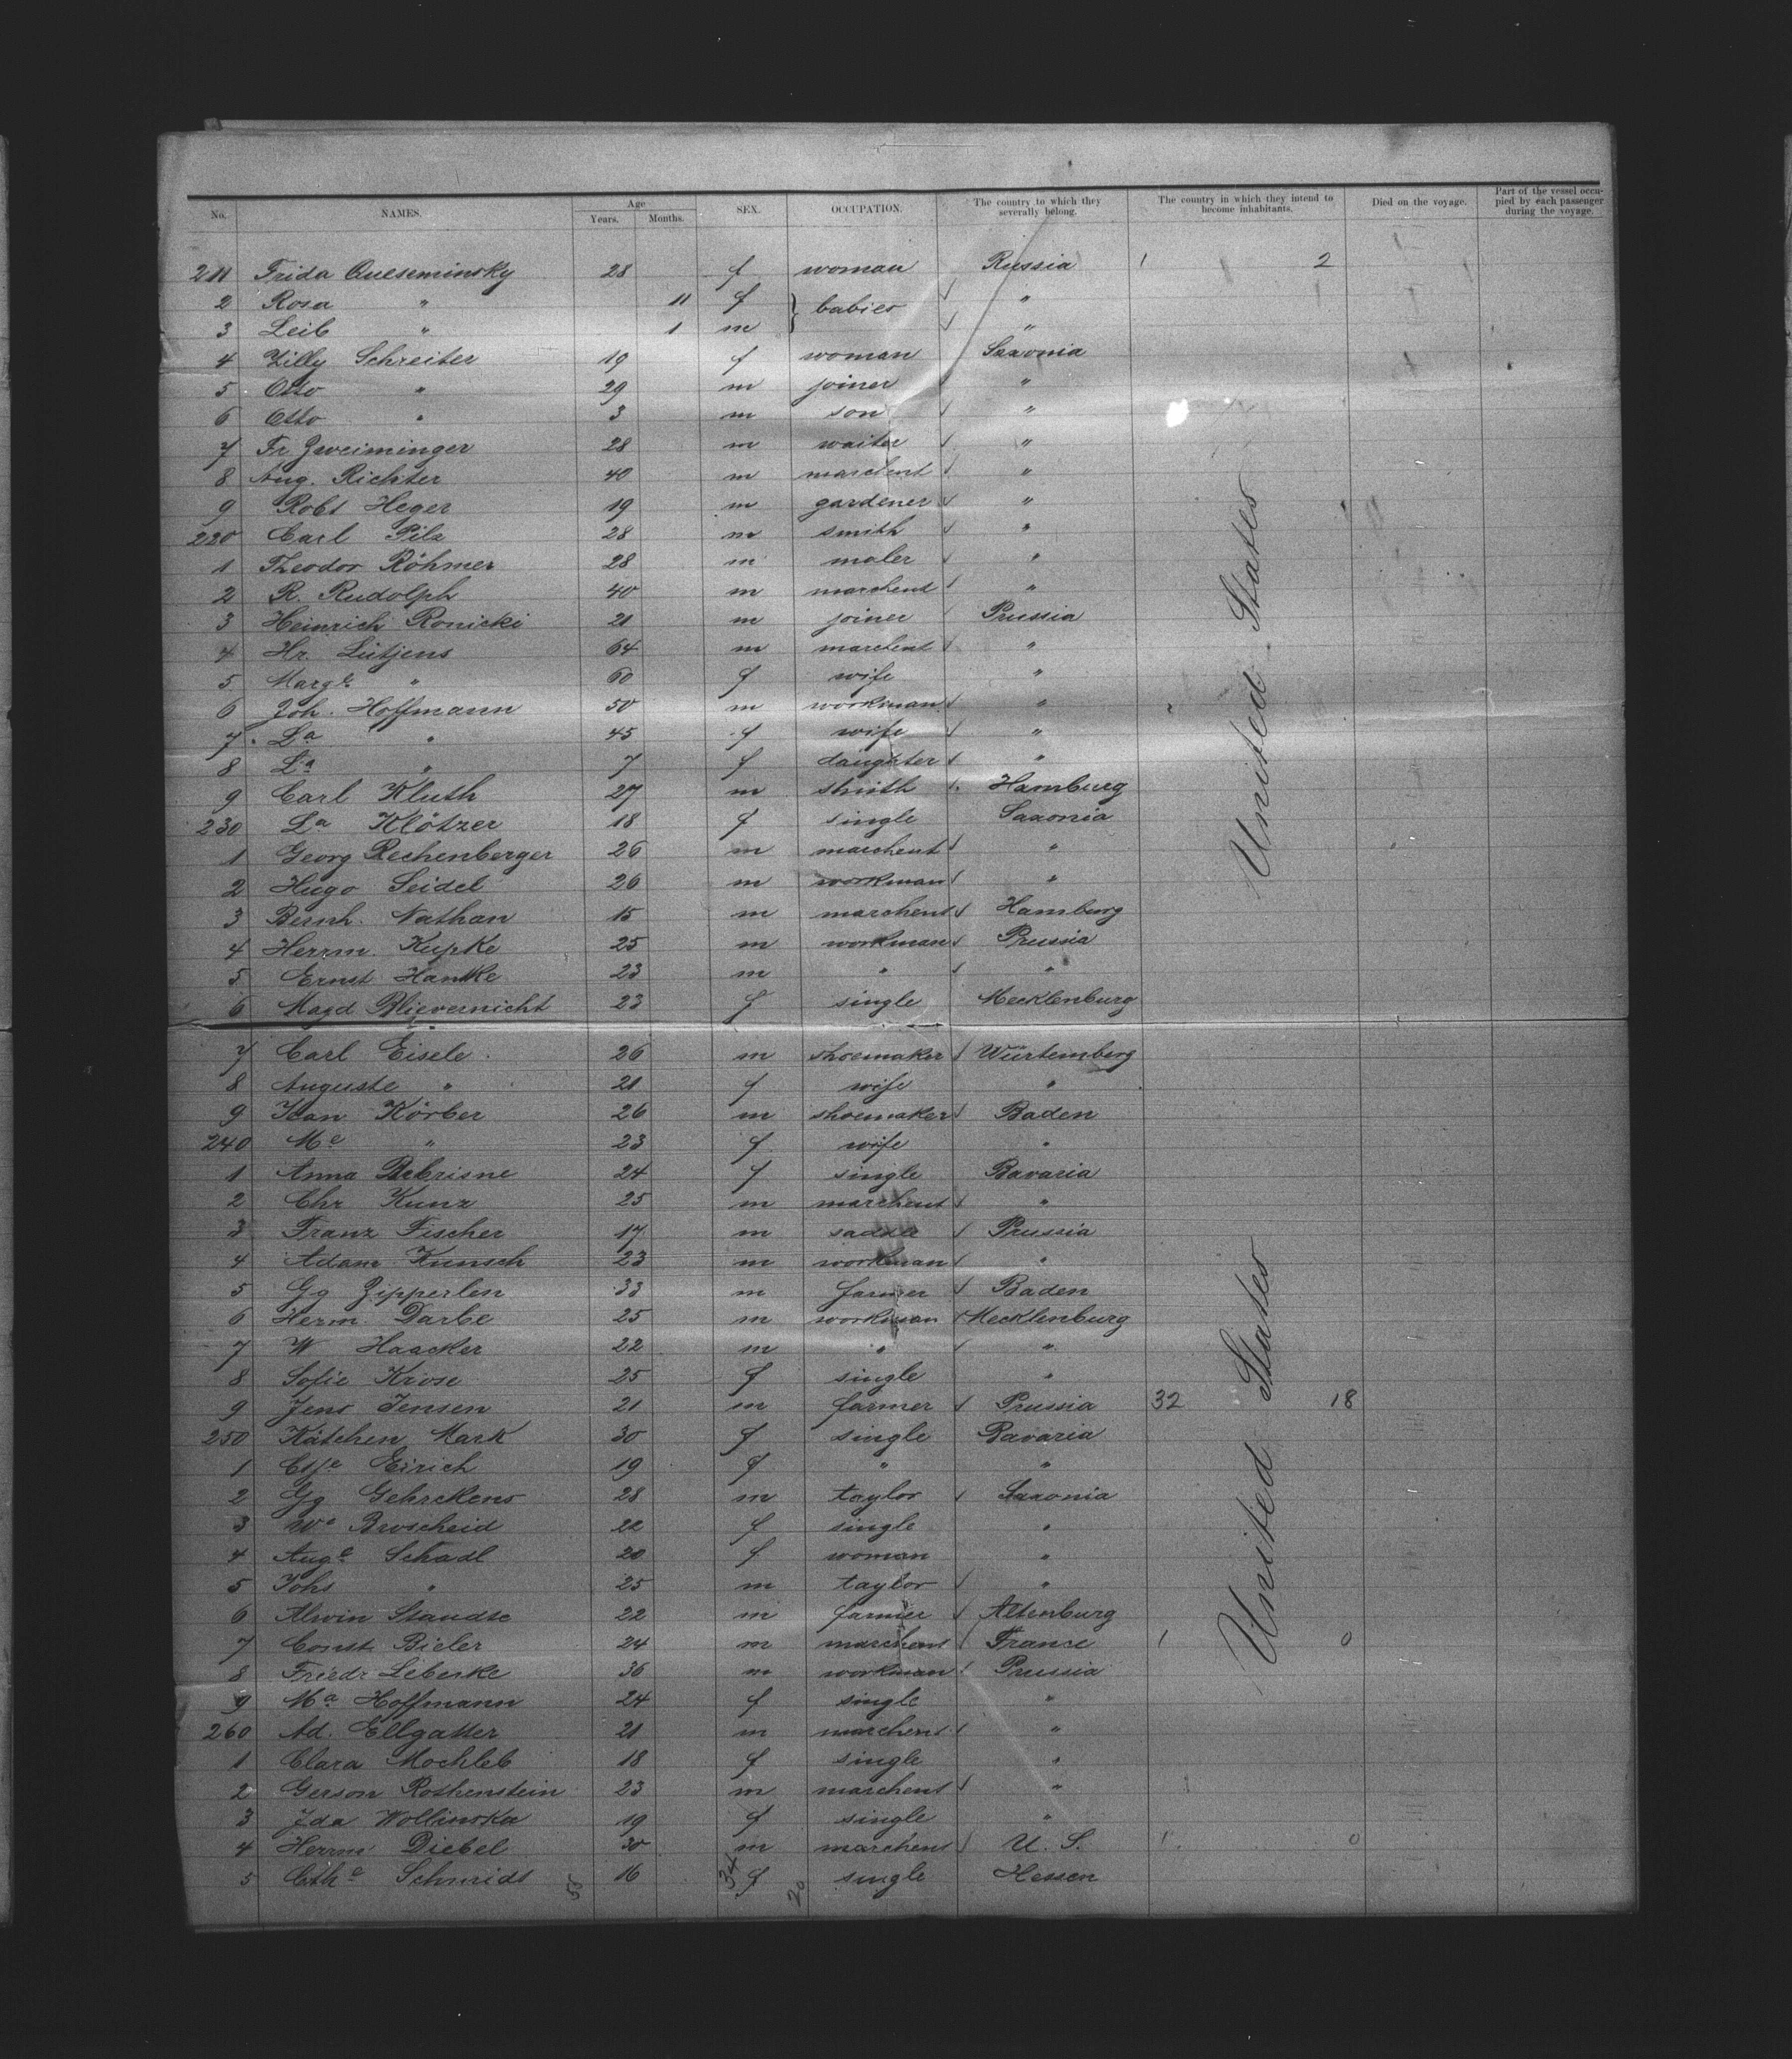 No. NAMES. Age Years. Months. SEX. OCCUPATION. The country to which they severally belong. The country in which they intend to become inhabitants. Died on the voyage. Part of the vessel occupied by each passenger during the voyage.
211 Frida Queseminsky 28 f woman Russia 1 2
2 Rosa " 11 f } babies "
3 Leib " 1 m "
4 Zilly Schreiter 19 f woman Saxonia
5 Otto " 29 m joiner "
6 Otto " 3 m son "
7 Fr Zweiminger 28 m waiter "
8 Aug. Richter 40 m marchent "
9 Robt Heger 19 m gardener "
220 Carl Pilz 28 m smith "
1 Theodor Röhmer 28 m maler "
2 R. Rudolph 40 m marchent "
3 Heinrich Ronicki 21 m joiner Prussia
4 Hr. Lütjens 64 m marchent "
5 Marg. " 60 f wife "
6 Joh. Hoffmann 50 m workman "
7 La " 45 f wife "
8 La " 7 f daughter "
9 Carl Kluth 27 m smith Hamburg
230 La Klötzer 18 f single Saxonia
1 Georg Rechenberger 26 m marchent "
2 Hugo Seidel 26 m workman "
3 Bernh. Nathan 15 m marchent Hamburg
4 Herrm. Kupke 25 m workman Prussia
5 Ernst Hanke 23 m " "
6 Magd Blievernicht 23 f single Mecklenburg
7 Carl Eisele 26 m shoemaker Würtemberg
8 Auguste " 21 f wife "
9 Jean Körber 26 m shoemaker Baden
240 Me " 23 f wife "
1 Anna 24 f single Bavaria
2 Chr Kunz 25 m marchent "
3 Franz Fischer 17 m Prussia
4 Adam Kunsch 23 m workman "
5 Gg Zipperlen 33 m farmer Baden
6 Herm. Darbe 25 m workman Mecklenburg
7 W Haacker 22 m " "
8 Sofie Krose 25 f single "
9 Jens Jensen 21 m farmer Prussia 32 18
250 Kätchen Mark 30 f single Bavaria
1 Eirich 19 f " "
2 Gg Gehrckens 28 m taylor Saxonia
3 We Broscheid 22 f single "
4 Auge Schadl 20 f woman "
5 Johs " 25 m taylor "
6 Alwin Staudte 22 m farmer Altenburg
7 Const. Bieler 24 m marchent France 1 0
8 Friedr Leberke 36 m workman Prussia
9 Ma Hoffmann 24 f single "
260 Ad. Ellgatter 21 m marchent "
1 Clara Mochleb 18 f single "
2 Gerson Rothenstein 23 m marchent "
3 Ida Wollinska 19 f single "
4 Herrm Diebel 30 m marchent U. S. 1 0
5 Cthe Schmidt 16 f single Hessen
55 34 20
United States
United States